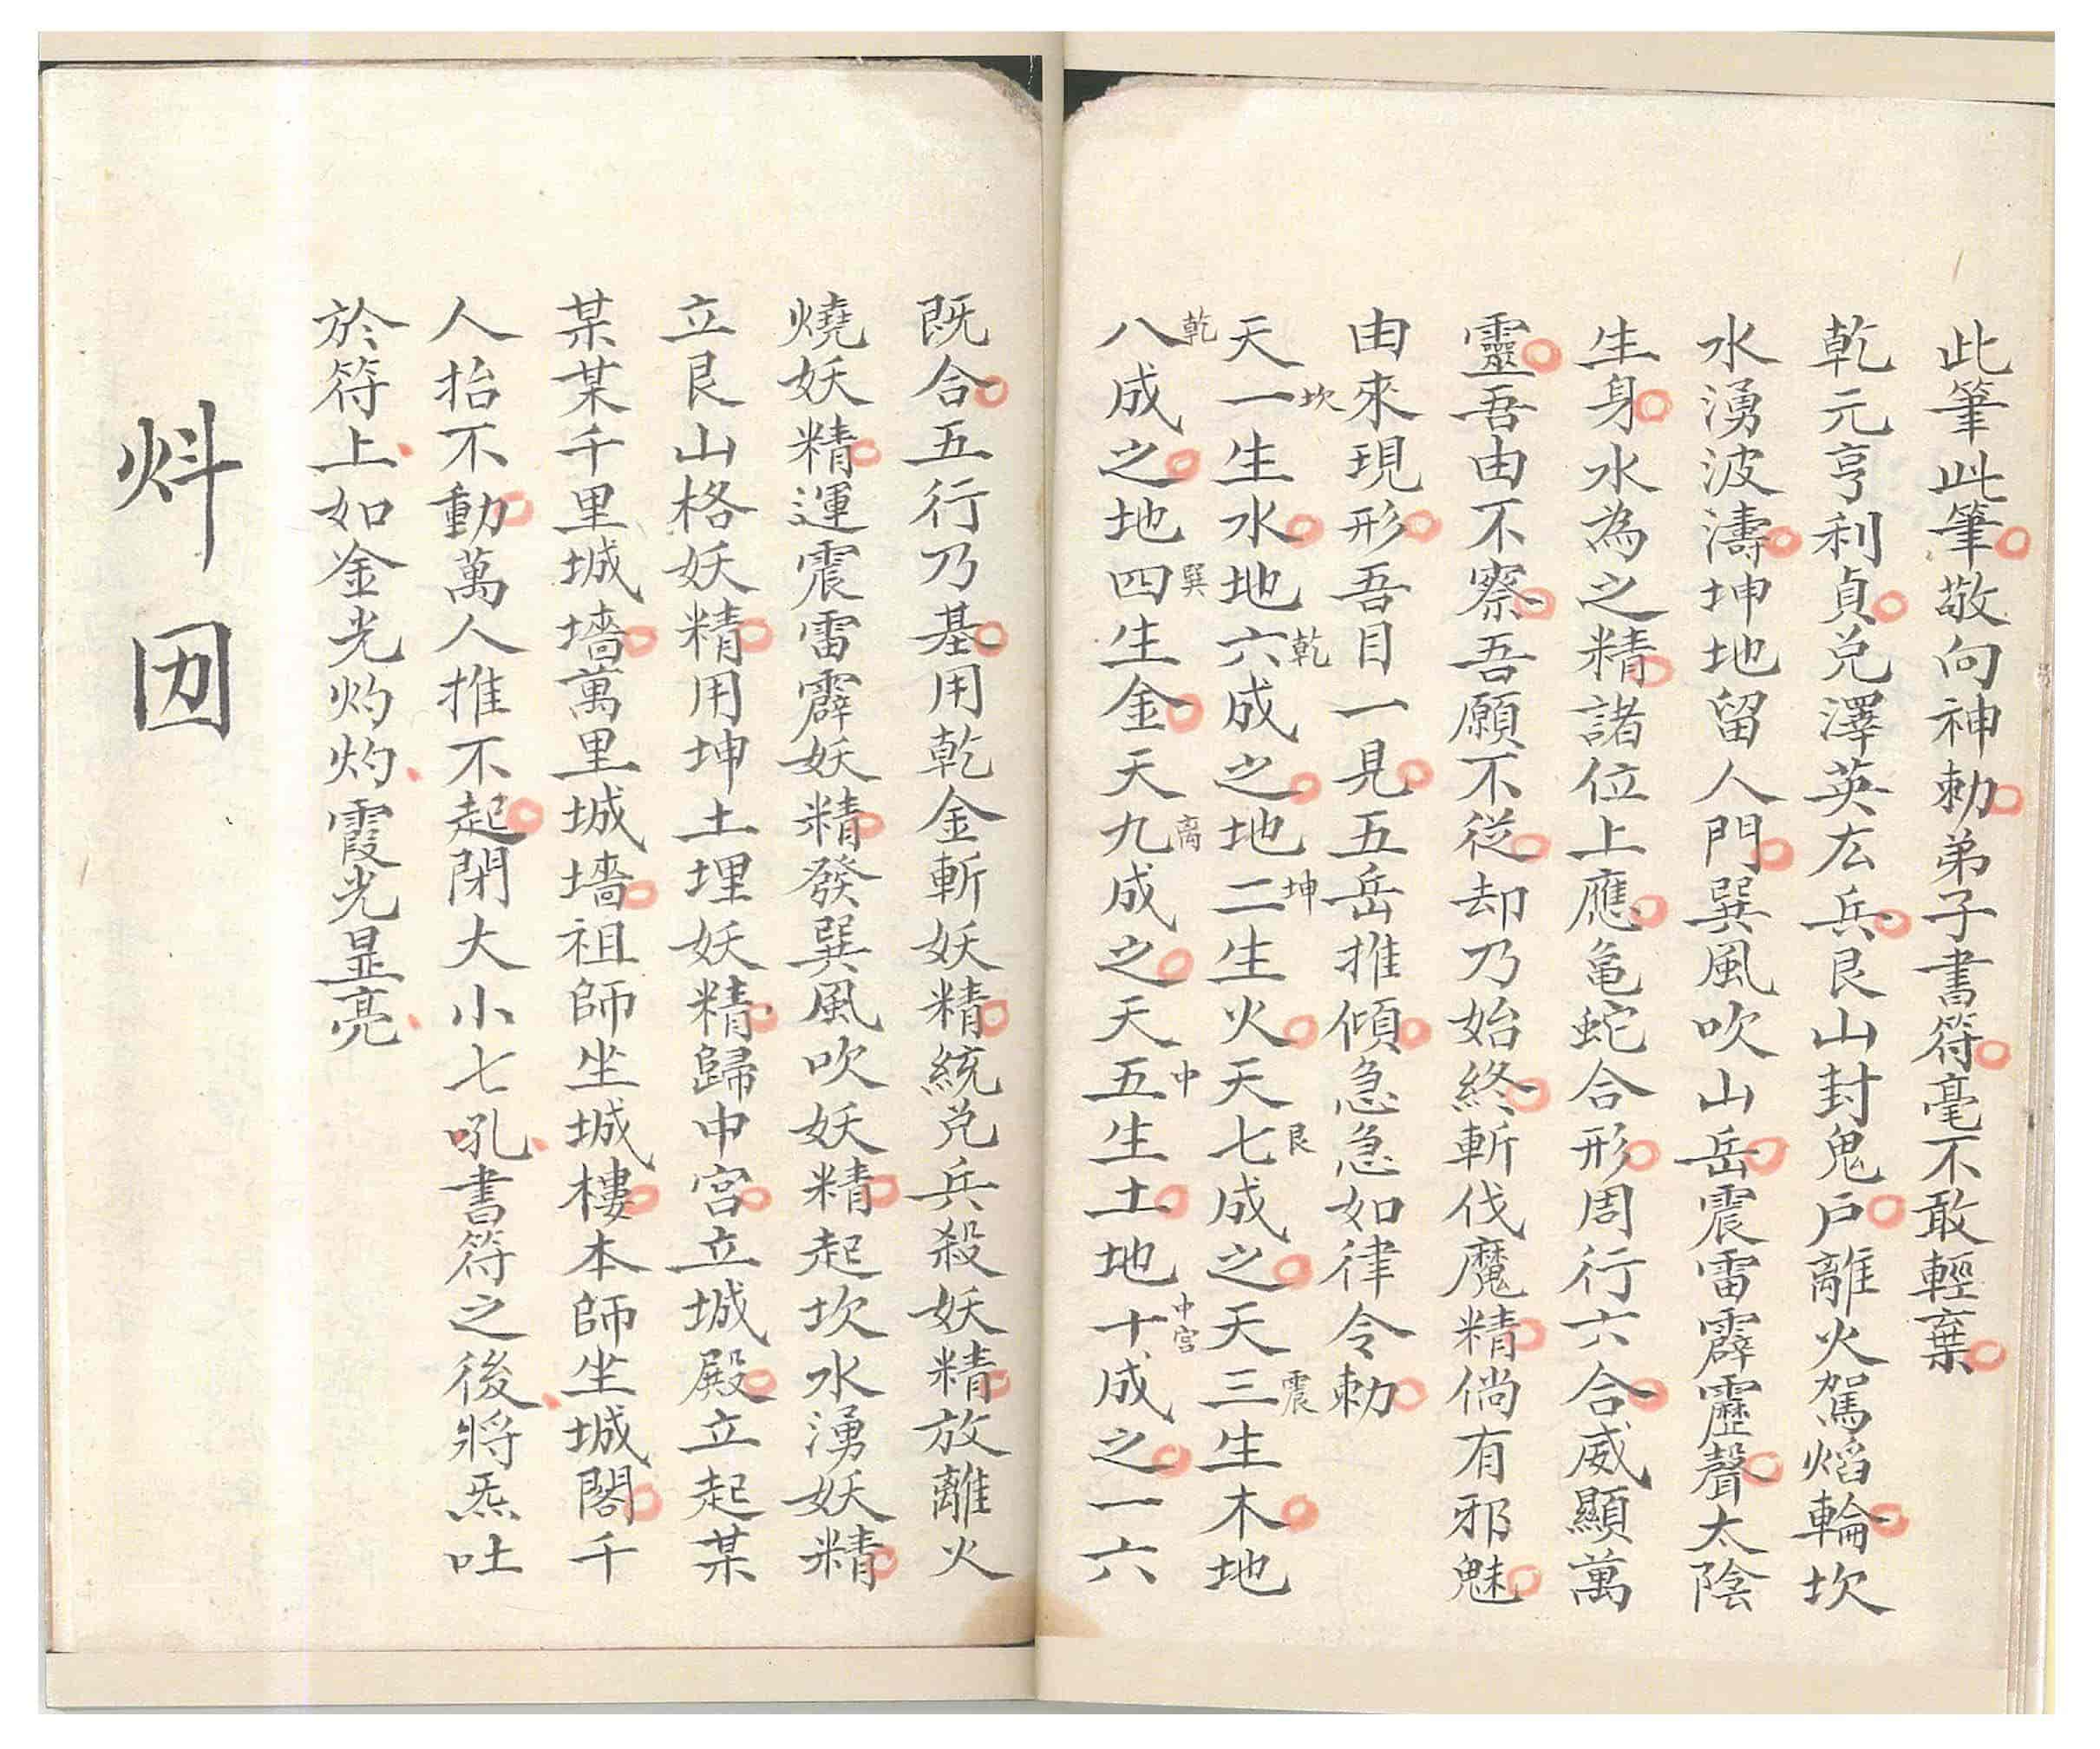 此筆此筆敬向神勅弟子書符毫不敢輕棄
乾元亨利貞兑澤英厷兵艮山封鬼戶離火駕熖輪坎
水湧波濤坤地留人門巽風吹山岳震雷霹靂聲太陰
生身水為之精諸位上應亀蛇合形周行六合威顯萬
靈吾由不察吾願不從却乃始終斬伐魔精倘有邪魅
由來現形吾目一見五岳推傾急急如律令勅
坎 乾 坤 艮 震
天一生水地六成之地二生火天七成之天三生木地
乾 巽 离 中 中宮
八成之地四生金天九成之天五生土地十成之一六
既合五行乃基用乾金斬妖精統兑兵殺妖精放離火
燒妖精運震雷霹妖精發巽風吹妖精起坎水湧妖精
立艮山格妖精用坤土埋妖精歸中宮立城殿立起某
某某千里城墻萬里城墻祖師坐城樓本師坐城閣千
人抬不動萬人推不起閉大小七吼書符之後將炁吐
於符上如金光灼灼霞光显亮